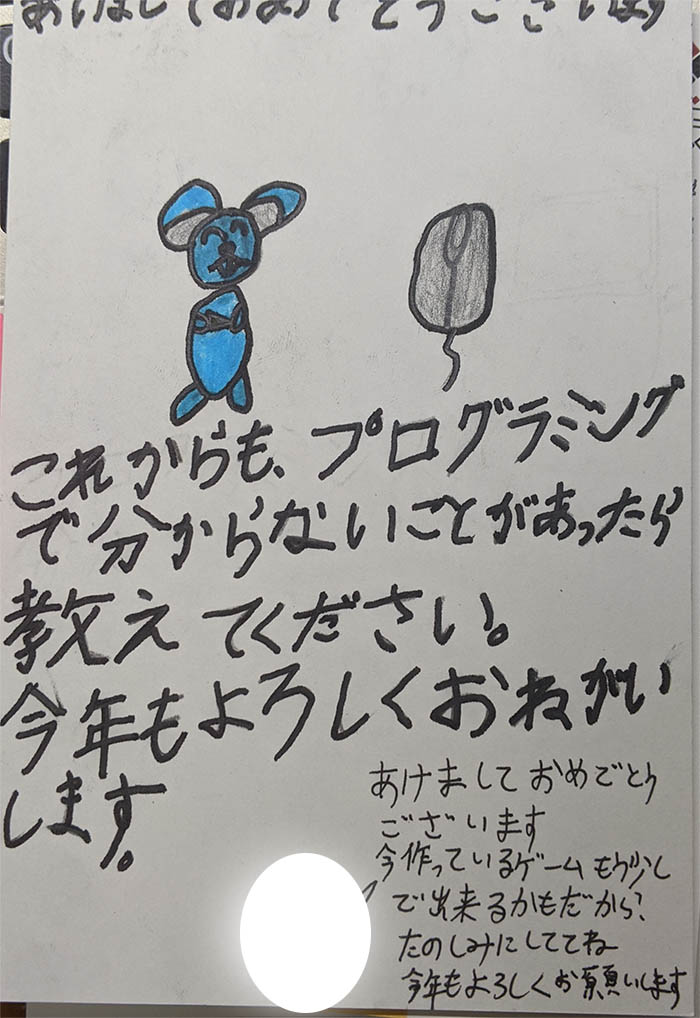 あけましておめでとうございます
これからも、プログラミング
で分からないことがあったら
教えてください。
今年もよろしくおねがい
します。
あけましておめでとう
ございます
今作っているゲームもう少し
で出来るかもだから?
たのしみにしててね
今年もよろしくお願いします